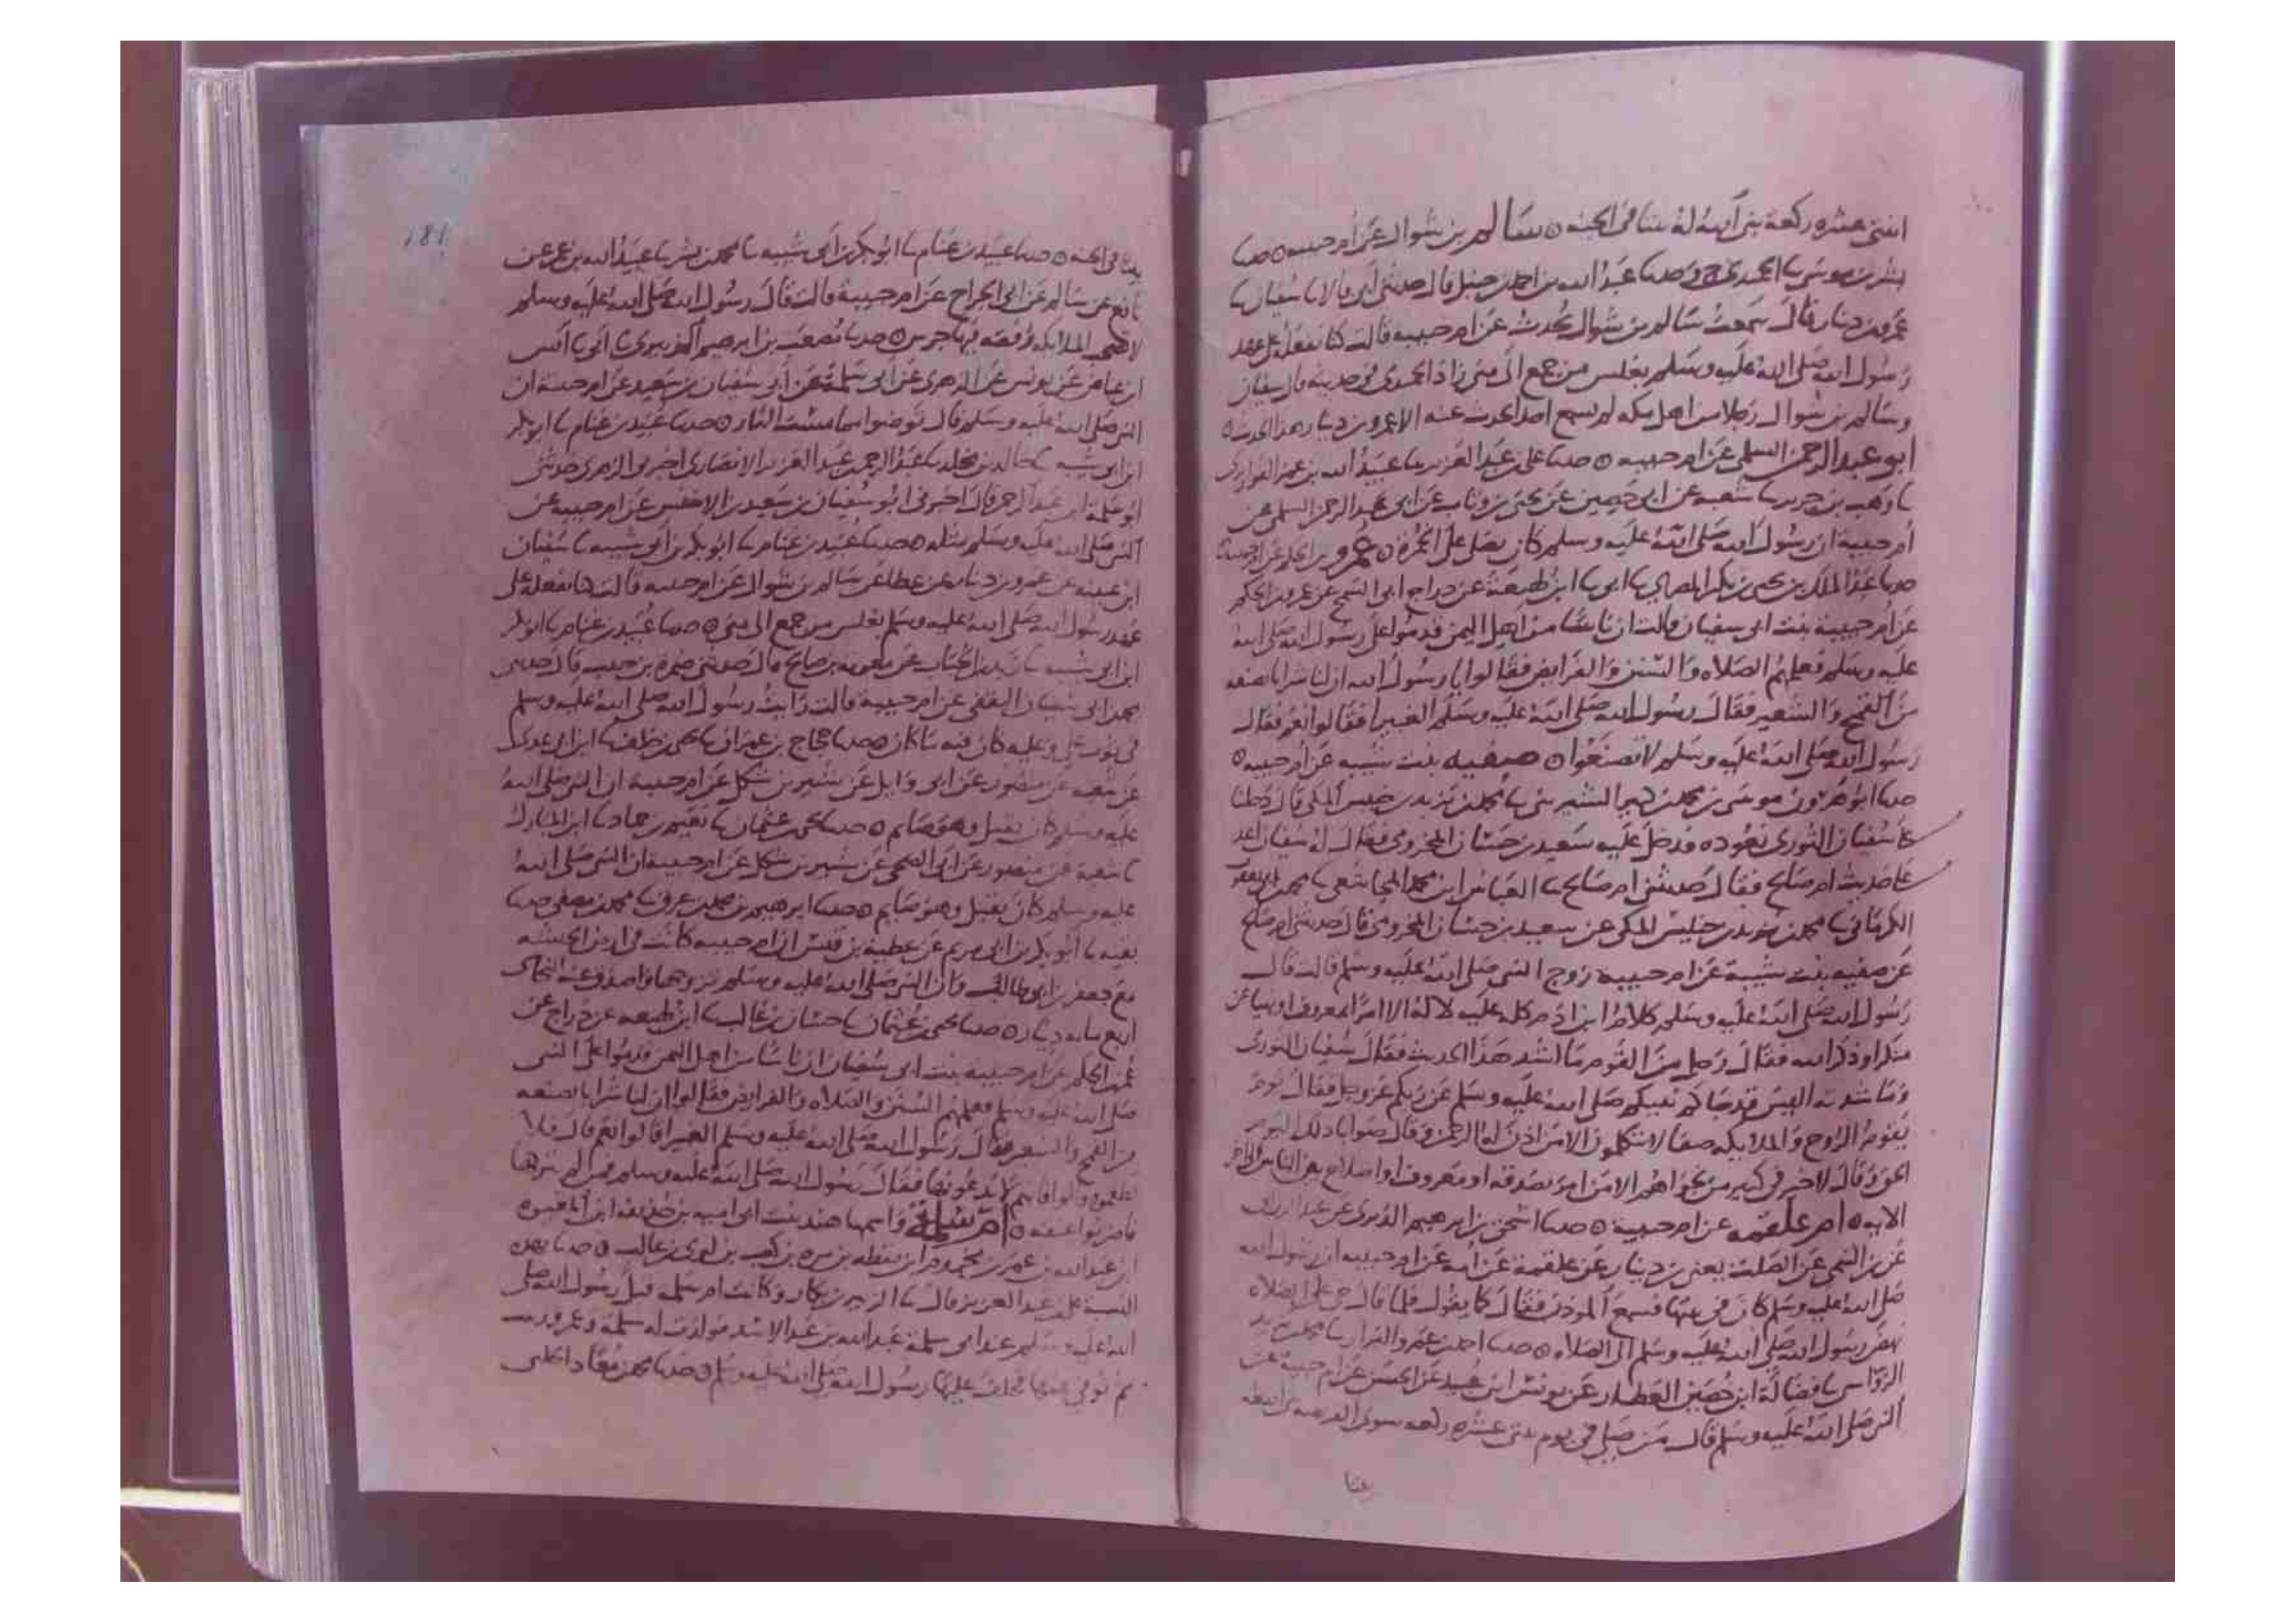 اثنتى عشره ركعة بنى الله له بيتا فى الجنه ٥ سالم بن شوال عن ام حبيبه ٥ حدثنا
بشر بن موسى نا الحميدى ح وحدثنا عبد الله بن احمد بن حنبل قال حدثنى ابى قالا نا سفيان نا
عمرو بن دينار قال سمعت سالم بن شوال يحدث عن ام حبيبه قالت كنا نفعله على عهد
رسول الله صلى الله عليه وسلم نغلس من جمع الى منى زاد الحميدى فى حديثه قال سفيان
وسالم بن شوال رجلا من اهل مكه لم نسمع احدا يحدث عنه الا عمرو بن دينار هذا الحديث ٥
ابو عبد الرحمن السلمى عن ام حبيبه ٥ حدثنا على بن عبد العزيز نا عبيد الله بن عمر القواريرى
نا وهب بن جرير نا شعبه عن ابى حصين عن يحيى بن وثاب عن ابى عبد الرحمن السلمى عن
ام حبيبة ان رسول الله صلى الله عليه وسلم كان يصلى على الخمرة ٥ عمرو بن الحكم عن ام حبيبة
حدثنا عبد الملك بن يحيى بن بكير المصرى نا ابى نا ابن لهيعة عن دراج ابى السمح عن عمرو بن الحكم
عن ام حبيبة بنت ابى سفيان قالت ان ناسا من اهل اليمن قدموا على رسول الله صلى الله
عليه وسلم فعلمهم الصلاه والسنن والفرايض فقالوا يا رسول الله ان لنا شرابا نصنعه
من القمح والشعير فقال رسول الله صلى الله عليه وسلم الغبيرا فقالوا نعم فقال
رسول الله صلى الله عليه وسلم لا تصنعوا ٥ صفيه بنت شيبه عن ام حبيبه ٥
حدثنا ابو هرون موسى بن محمد بن كثير السيرينى نا محمد بن يزيد بن خنيس المكى قال دخلنا
على سفيان الثورى نعوده فدخل عليه سعيد بن حسان المخزومى فقال له سفيان اعد
على حديث ام صالح فقال حدثتنى ام صالح نا العباس ابن محمد المجاشعى نا محمد بن ابى يعقوب
الكرمانى نا محمد بن يزيد بن خنيس المكى عن سعيد بن حسان المخزومى قال حدثتنى ام صالح
عن صفيه بنت شيبة عن ام حبيبه زوج النبى صلى الله عليه وسلم قالت قال
رسول الله صلى الله عليه وسلم كلام ابن ادم كله عليه لا له الا امرا بمعروف او نهيا عن
منكر او ذكر الله فقال رجل من القوم ما اشد هذا الحديث فقال سفيان الثورى
وما شدته اليس قد جاكم نبيكم صلى الله عليه وسلم عن ربكم عز وجل فقال يوم
يقوم الروح والملايكه صفا لا يتكلمون الا من اذن له الرحمن وقال صوابا ذلك اليوم
الحق وقال لا خير فى كثير من نجواهم الا من امر بصدقه او معروف او اصلاح بين الناس الى اخر
الايه ٥ ام علقمه عن ام حبيبة ٥ حدثنا اسحق بن ابرهيم الدبرى عن عبد الرزاق
عن التيمى عن الصلت يعنى بن دينار عن علقمة عن امه عن ام حبيبه ان رسول الله
صلى الله عليه وسلم كان فى بيتها فسمع الموذن فقال كما يقول فلما قال حى على الصلاه
نهض رسول الله صلى الله عليه وسلم الى الصلاه ٥ حدثنا احمد بن عمرو البزار نا محمد بن
الرواس نا فضالة ابن حصين العطار عن يونس ابن عبيد عن الحسن عن ام حبيبة عن
النبى صلى الله عليه وسلم قال من صلى فى يوم ثنتى عشره ركعه سوى الفريضه بنى الله له
بيتا
181
بيتا فى الجنه ٥ حدثنا عبيد بن غنام نا ابو بكر بن ابى شيبه نا محمد بن بشر نا عبيد الله بن عمر عن
نافع عن سالم عن ابى الجراح عن ام حبيبة قالت قال رسول الله صلى الله عليه وسلم
لا تصحب الملايكه رفقه فيها جرس ٥ حدثنا مصعب بن ابرهيم الزبيرى نا ابى نا انس
ابن عياض عن يونس عن الزهرى عن ابى سلمة عن ابى سفيان بن سعيد عن ام حبيبة ان
النبى صلى الله عليه وسلم قال توضوا مما مست النار ٥ حدثنا عبيد بن غنام نا ابو بكر
ابن ابى شيبه نا خالد بن مخلد نا عبد الرحمن بن عبد العزيز الانصارى اخبرنى الزهرى حدثنى
ابو سلمة ابن عبد الرحمن قال اخبرنى ابو سفيان بن سعيد بن الاخنس عن ام حبيبه عن
النبى صلى الله عليه وسلم مثله ٥ حدثنا عبيد بن غنام نا ابو بكر بن ابى شيبه نا سفيان
ابن عيينه عن عمرو بن دينار عن عطا عن سالم بن شوال عن ام حبيبه قالت كنا نفعله على
عهد رسول الله صلى الله عليه وسلم نغلس من جمع الى منى ٥ حدثنا عبيد بن غنام نا ابو بكر
ابن ابى شيبه نا زيد بن الحباب عن معويه بن صالح قال حدثنى ضمرة بن حبيب قال حدثنى
محمد بن ابى سفيان الثقفى عن ام حبيبة قالت رايت رسول الله صلى الله عليه وسلم
فى ثوب على وعليه كان فيه ما كان ٥ حدثنا حجاج بن عمران نا يحيى بن خلف نا ابن ابى عدى
عن شعبه عن منصور عن ابى وايل عن شتير بن شكل عن ام حبيبة ان النبى صلى الله
عليه وسلم كان يقبل وهو صايم ٥ حدثنا يحيى بن عثمان نا نعيم بن حماد نا ابن المبارك
نا شعبة عن منصور عن ابى الضحى عن شتير بن شكل عن ام حبيبة ان النبى صلى الله
عليه وسلم كان يقبل وهو صايم ٥ حدثنا ابرهيم بن محمد بن عرق نا محمد بن مصفى حدثنا
بقيه نا ابو بكر بن ابى مريم عن عطية بن قيس ان ام حبيبه كانت فى ارض الحبشه
مع جعفر بن ابى طالب وان النبى صلى الله عليه وسلم تزوجها واصدق عنه النجاشى
اربع مايه دينار ٥ حدثنا يحيى بن عثمان نا حسان بن غالب نا ابن لهيعه عن دراج عن
عمر بن الحكم عن ام حبيبة بنت ابى سفيان ان ناسا من اهل اليمن قدموا على النبى
صلى الله عليه وسلم فعلمهم السنن والصلاه والفرايض فقالوا ان لنا شرابا نصنعه
من القمح والشعير فقال رسول الله صلى الله عليه وسلم الغبيرا قالوا نعم قال فلا
تطعموه قالوا فانهم لا يدعونها فقال رسول الله صلى الله عليه وسلم فمن لم يتركها
فاضربوا عنقه ٥ ام سلمة واسمها هند بنت ابى اميه بن حذيفه ابن
ابن عبد الله بن عمر بن مخزوم ابن يقظه بن مره بن كعب بن لوى بن غالب ٥ حدثنا بهذه
النسبة على بن عبد العزيز قال نا الزبير بن بكار وكانت ام سلمه قبل رسول الله صلى
الله عليه وسلم عند ابى سلمة عبد الله بن عبد الاسد فولدت له سلمة وعمر ودره
ثم توفى عنها فخلف عليها رسول الله صلى الله عليه وسلم ٥ حدثنا محمد بن معاذ الحلبى